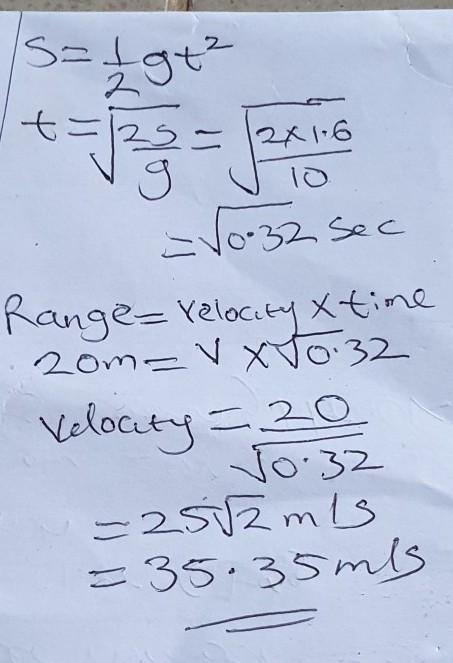 S = 1/2 gt²
t = √(2s/g) = √(2×1.6/10)
= √0.32 sec
Range = Velocity × time
20m = V × √0.32
Velocity = 20/√0.32
= 25√2 m/s
= 35.35 m/s